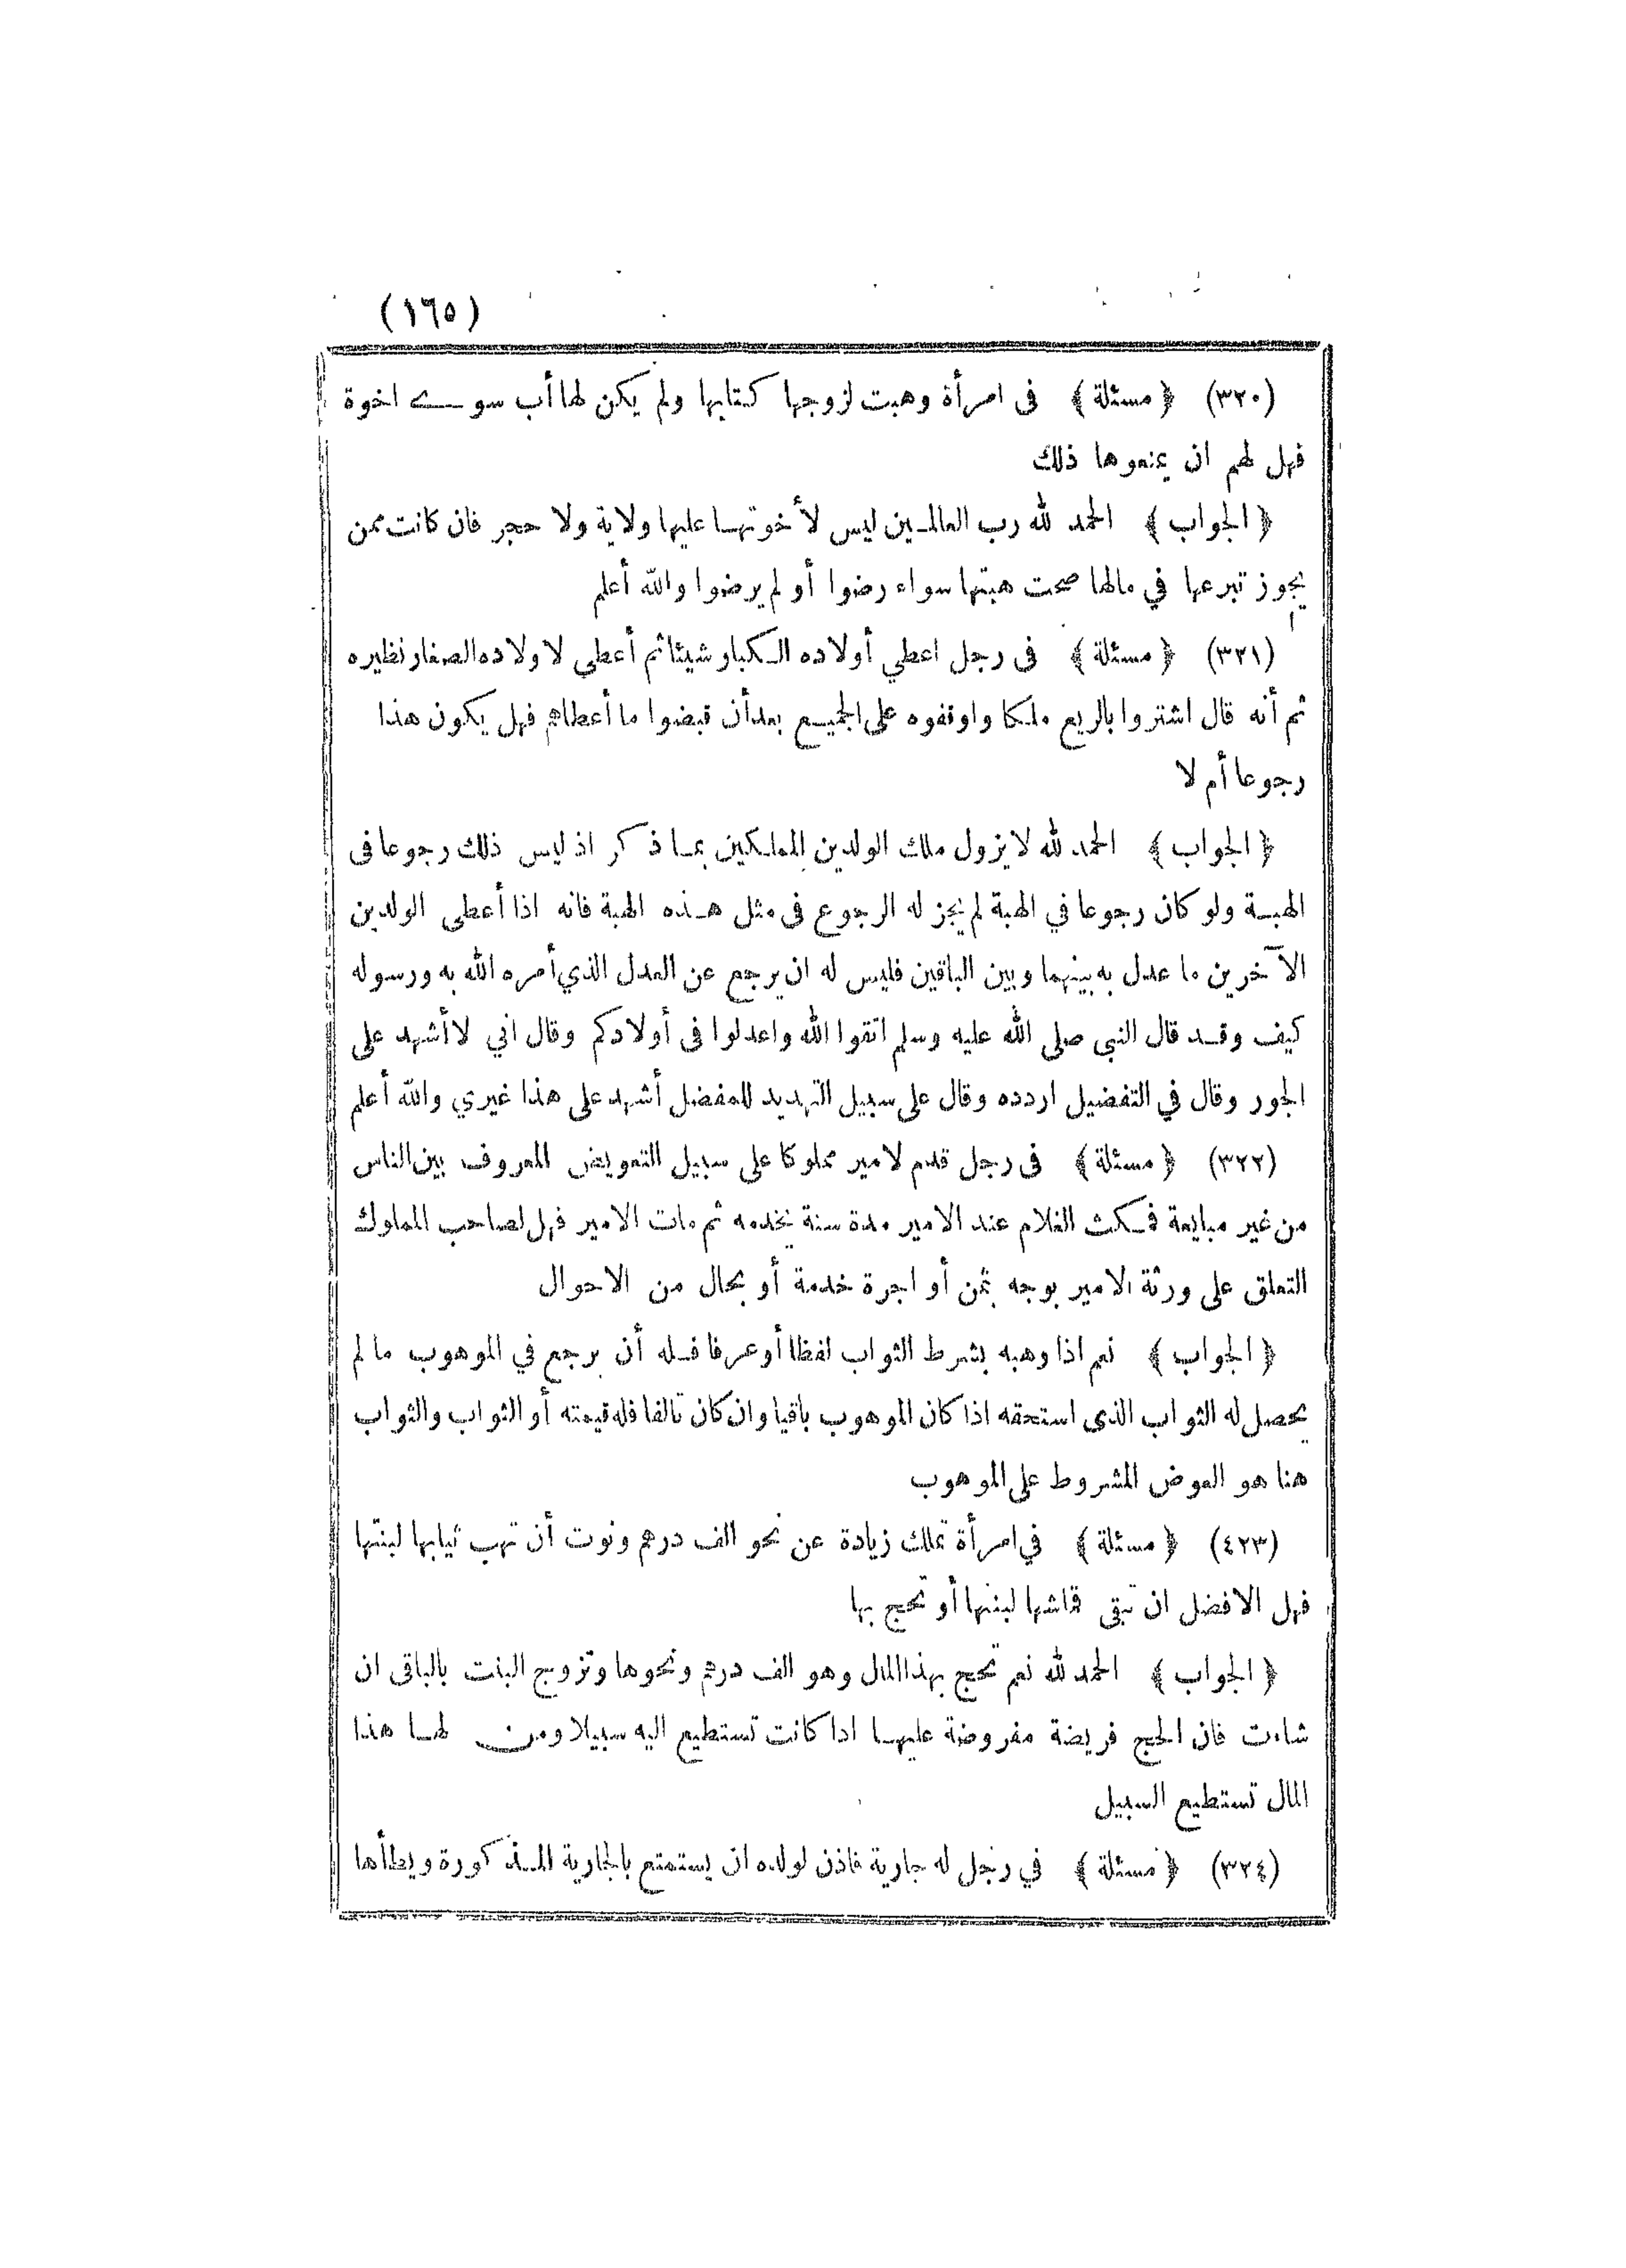 (١٦٥)
(٣٢٠) ﴿ مسئلة ﴾ فى امرأة وهبت لزوجها كتابها ولم يكن لها أب سوى اخوة
فهل لهم ان يمنعوها ذلك
﴿ الجواب ﴾ الحمد لله رب العالمين ليس لأخوتها عليها ولاية ولا حجر فان كانت ممن
يجوز تبرعها في مالها صحت هبتها سواء رضوا أو لم يرضوا والله أعلم
(٣٢١) ﴿ مسئلة ﴾ فى رجل اعطي أولاده الكبار شيئا ثم أعطى لاولاده الصغار نظيره
ثم أنه قال اشتروا بالريع ملكا واوقفوه على الجميع بعد أن قبضوا ما أعطاهم فهل يكون هذا
رجوعا أم لا
﴿ الجواب ﴾ الحمد لله لا يزول ملك الولدين المملكين بما ذكر اذ ليس ذلك رجوعا فى
الهبة ولو كان رجوعا في الهبة لم يجز له الرجوع فى مثل هذه الهبة فانه اذا أعطى الولدين
الآخرين ما عدل به بينهما وبين الباقين فليس له ان يرجع عن العدل الذي أمره الله به ورسوله
كيف وقد قال النبي صلى الله عليه وسلم اتقوا الله واعدلوا فى أولادكم وقال اني لا أشهد على
الجور وقال في التفضيل اردده وقال على سبيل التهديد للمفضل أشهد على هذا غيري والله أعلم
(٣٢٢) ﴿ مسئلة ﴾ فى رجل قدم لامير مملوكا على سبيل التعويض المعروف بين الناس
من غير مبايعة فمكث الغلام عند الامير مدة سنة يخدمه ثم مات الامير فهل لصاحب المملوك
التعلق على ورثة الامير بوجه بثمن أو اجرة خدمة أو بحال من الاحوال
﴿ الجواب ﴾ نعم اذا وهبه بشرط الثواب لفظا أو عرفا فله أن يرجع في الموهوب ما لم
يحصل له الثواب الذى استحقه اذا كان الموهوب باقيا وان كان تالفا فله قيمته أو الثواب والثواب
هنا هو العوض المشروط على الموهوب
(٤٢٣) ﴿ مسئلة ﴾ في امرأة تملك زيادة عن نحو الف درهم ونوت أن تهب ثيابها لبنتها
فهل الافضل ان تبقى قماشها لبنتها أو تحج بها
﴿ الجواب ﴾ الحمد لله نعم تحج بهذا المال وهو الف درهم ونحوها وتزوج البنت بالباقى ان
شاءت فان الحج فريضة مفروضة عليها اذا كانت تستطيع اليه سبيلا ومن لها هذا
المال تستطيع السبيل
(٣٢٤) ﴿ مسئلة ﴾ في رجل له جارية فاذن لولده ان يستمتع بالجارية المذكورة ويطأها